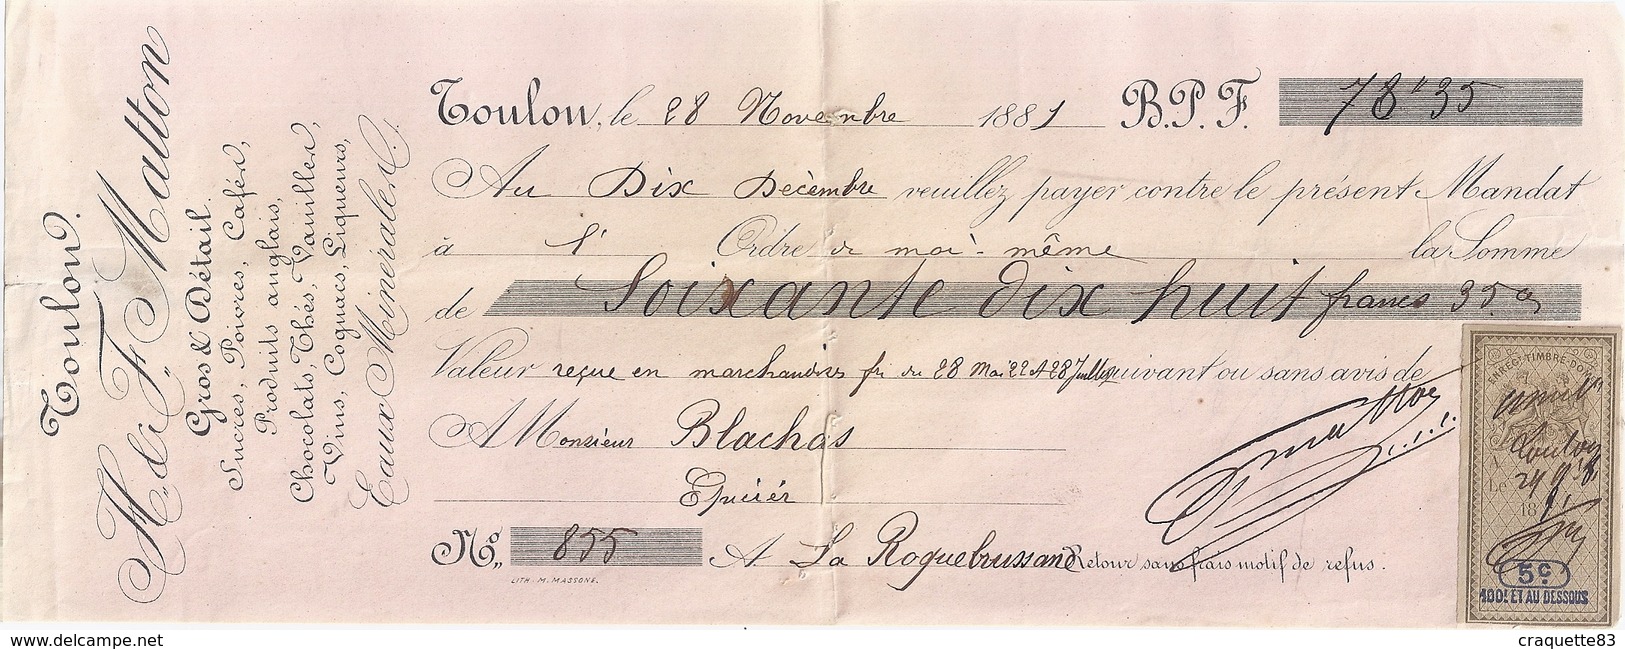 Toulon.
H. de Fr. Matton
Gros & Détail.
Sucres, Poivres, Cafés,
Produits anglais,
Chocolats, Thés, Vanilles,
Vins, Cognacs, Liqueurs,
Eaux Minérales.
Toulon, le 28 Novembre 1881 B.P.F. 78"35
Au Dix Décembre veuillez payer contre le présent Mandat
à l' Ordre de moi-même la Somme
de Soixante dix huit francs 35 c
Valeur reçue en marchandises fre du 28 Mai 22 et 28 Juillet suivant ou sans avis de
A Monsieur Blachas
Epicier
No. 855 A La Roquebrussane Retour sans frais motif de refus.
LITH. M. MASSONE.
ENREGt TIMBRE DOM
A Toulon
Le 29 9
18
5c
100f ET AU DESSOUS
www.delcampe.net
craquette83